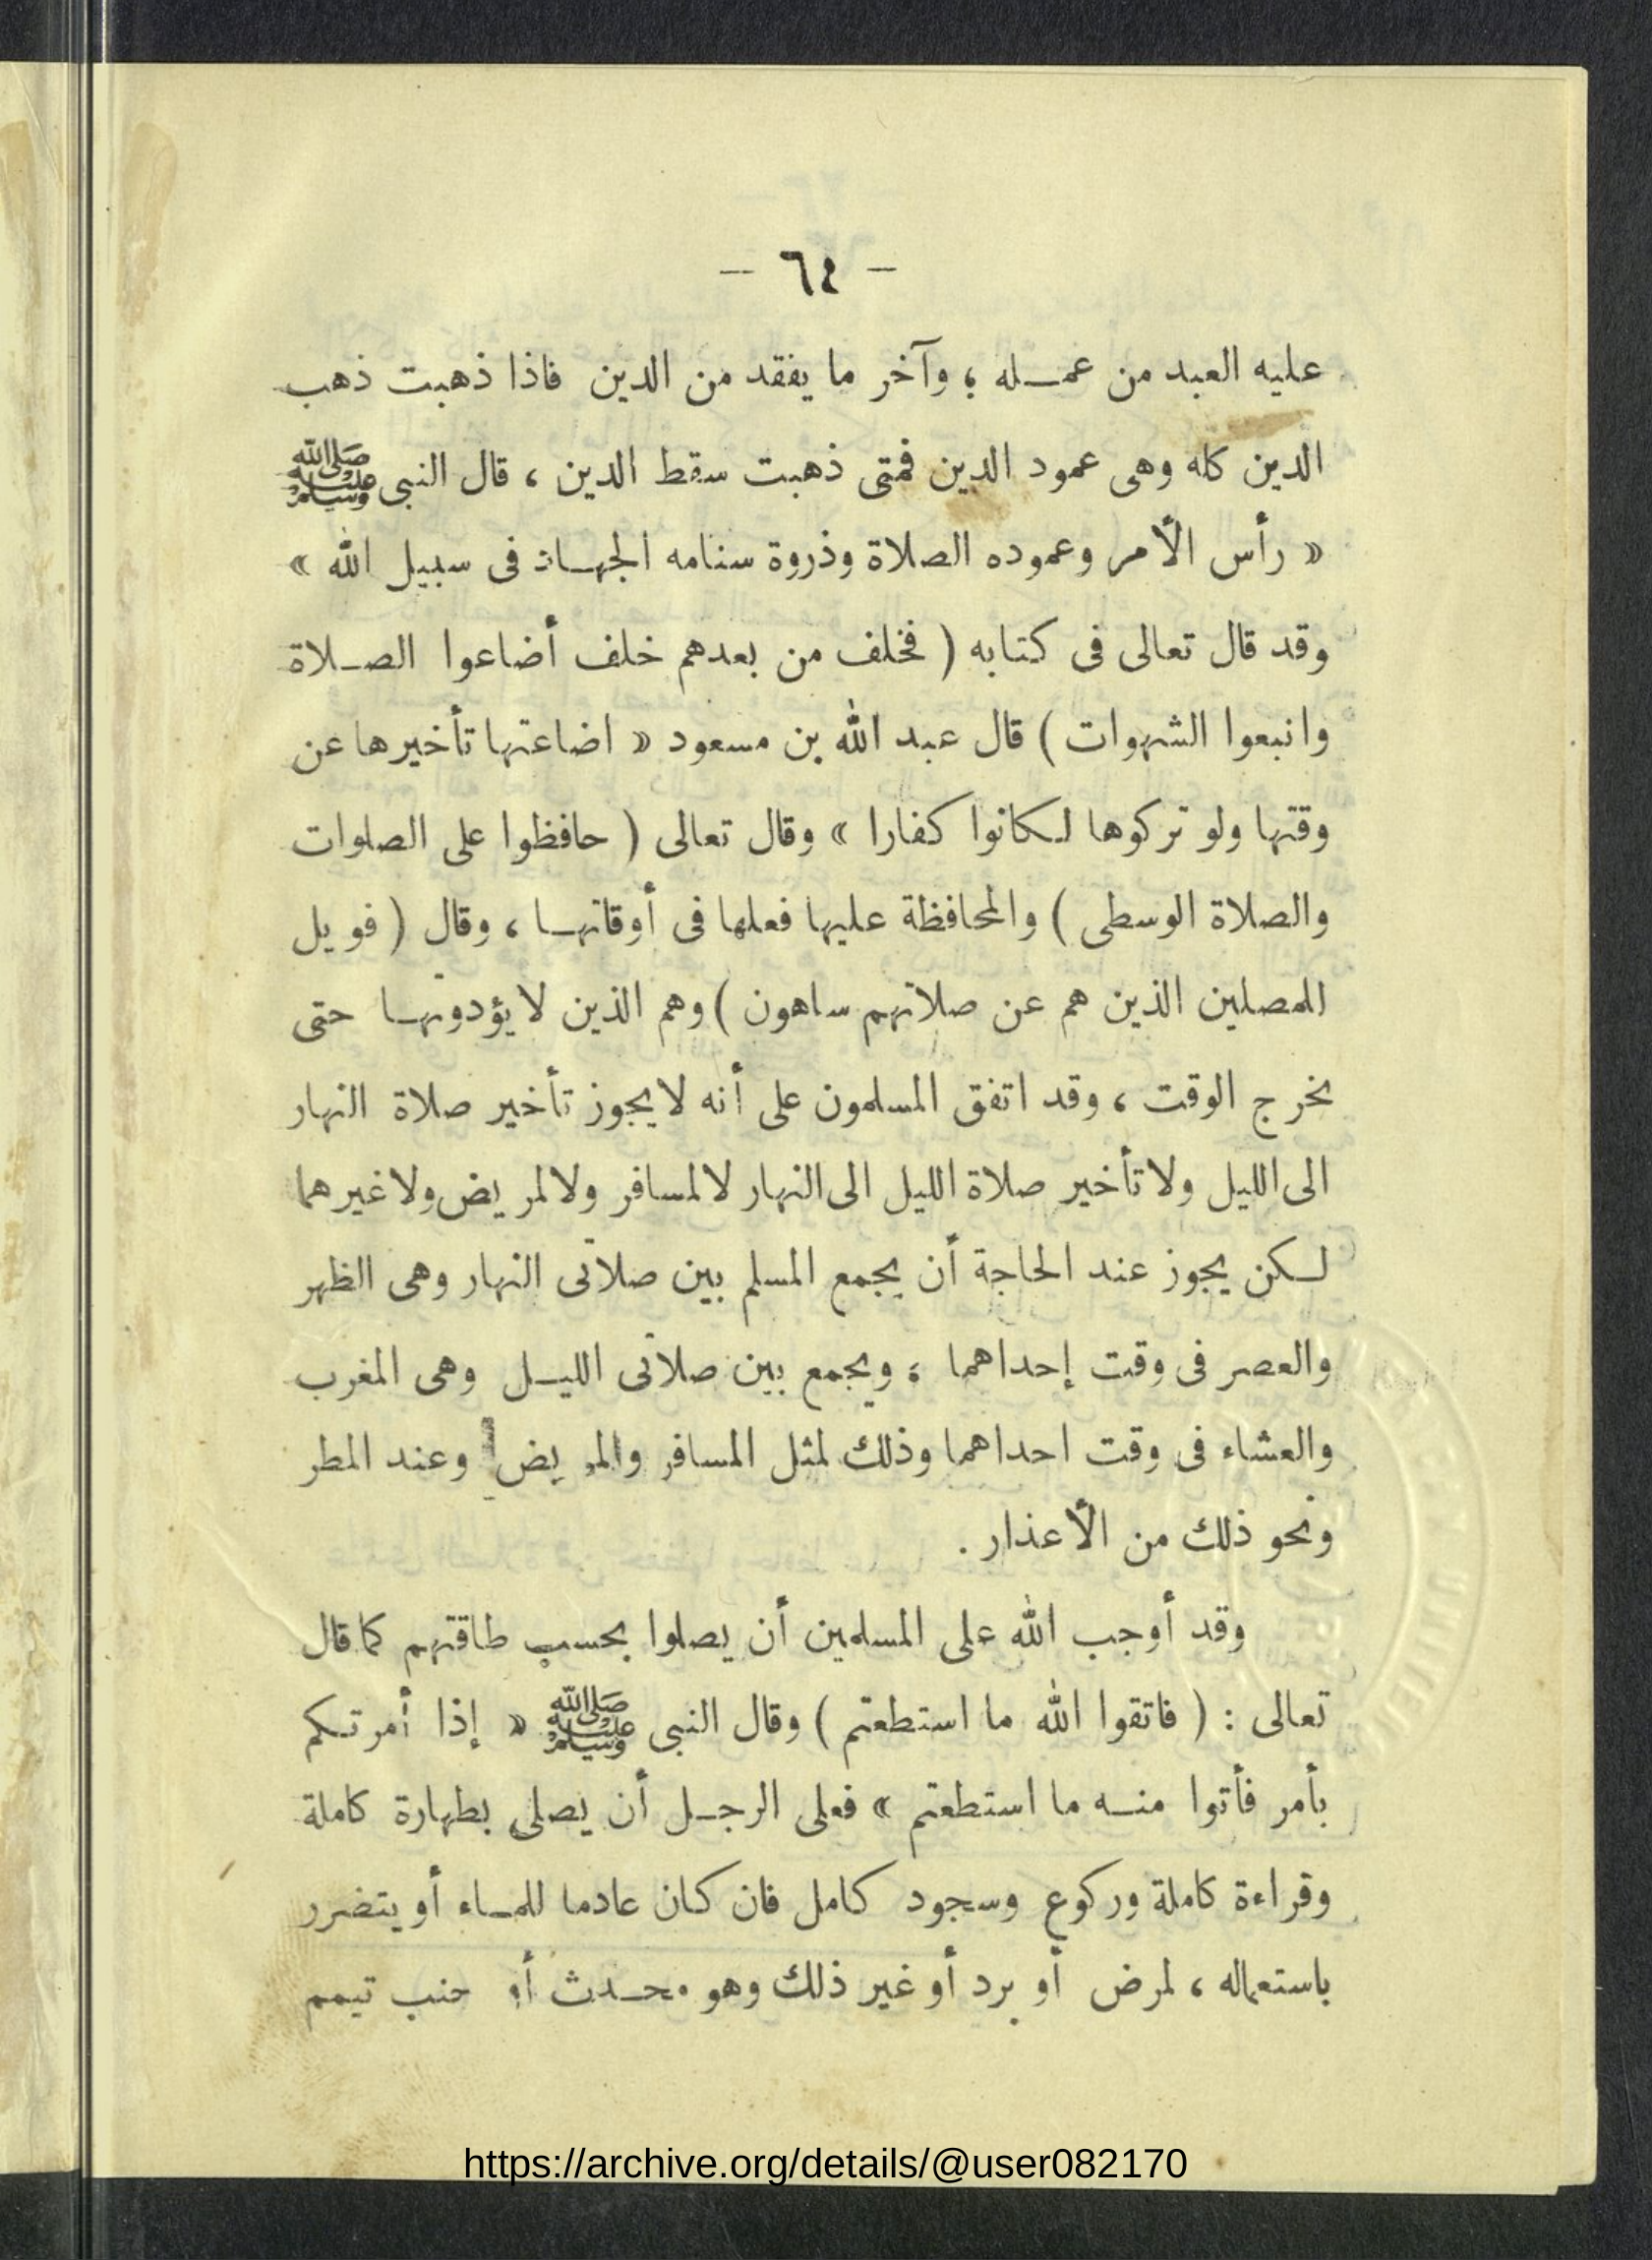 - ٦٤ -
عليه العبد من عمـله ؛ وآخر ما يفقد من الدين فاذا ذهبت ذهب
الدين كله وهى عمود الدين فمتى ذهبت سقط الدين ، قال النبى ﷺ
« رأس الأمر وعموده الصلاة وذروة سنامه الجهـاد فى سبيل الله »
وقد قال تعالى فى كتابه ( فخلف من بعدهم خلف أضاعوا الصـلاة
واتبعوا الشهوات ) قال عبد الله بن مسعود « اضاعتها تأخيرها عن
وقتها ولو تركوها لكانوا كفارا » وقال تعالى ( حافظوا على الصلوات
والصلاة الوسطى ) والمحافظة عليها فعلها فى أوقاتهـا ، وقال ( فويل
للمصلين الذين هم عن صلاتهم ساهون ) وهم الذين لا يؤدونهـا حتى
يخرج الوقت ، وقد اتفق المسلمون على أنه لا يجوز تأخير صلاة النهار
الى الليل ولا تأخير صلاة الليل الى النهار لا لمسافر ولا لمريض ولا غيرهما
لـكن يجوز عند الحاجة أن يجمع المسلم بين صلاتى النهار وهى الظهر
والعصر فى وقت إحداهما ؛ ويجمع بين صلاتى الليـل وهى المغرب
والعشاء فى وقت احداهما وذلك لمثل المسافر والمريض وعند المطر
ونحو ذلك من الأعذار .
وقد أوجب الله على المسلمين أن يصلوا بحسب طاقتهم كما قال
تعالى : ( فاتقوا الله ما استطعتم ) وقال النبى ﷺ « إذا أمرتـكم
بأمر فأتوا منـه ما استطعتم » فعلى الرجـل أن يصلى بطهارة كاملة
وقراءة كاملة وركوع وسجود كامل فان كان عادما للمـاء أو يتضرر
باستعماله ، لمرض أو برد أو غير ذلك وهو محـدث أو جنب تيمم
https://archive.org/details/@user082170